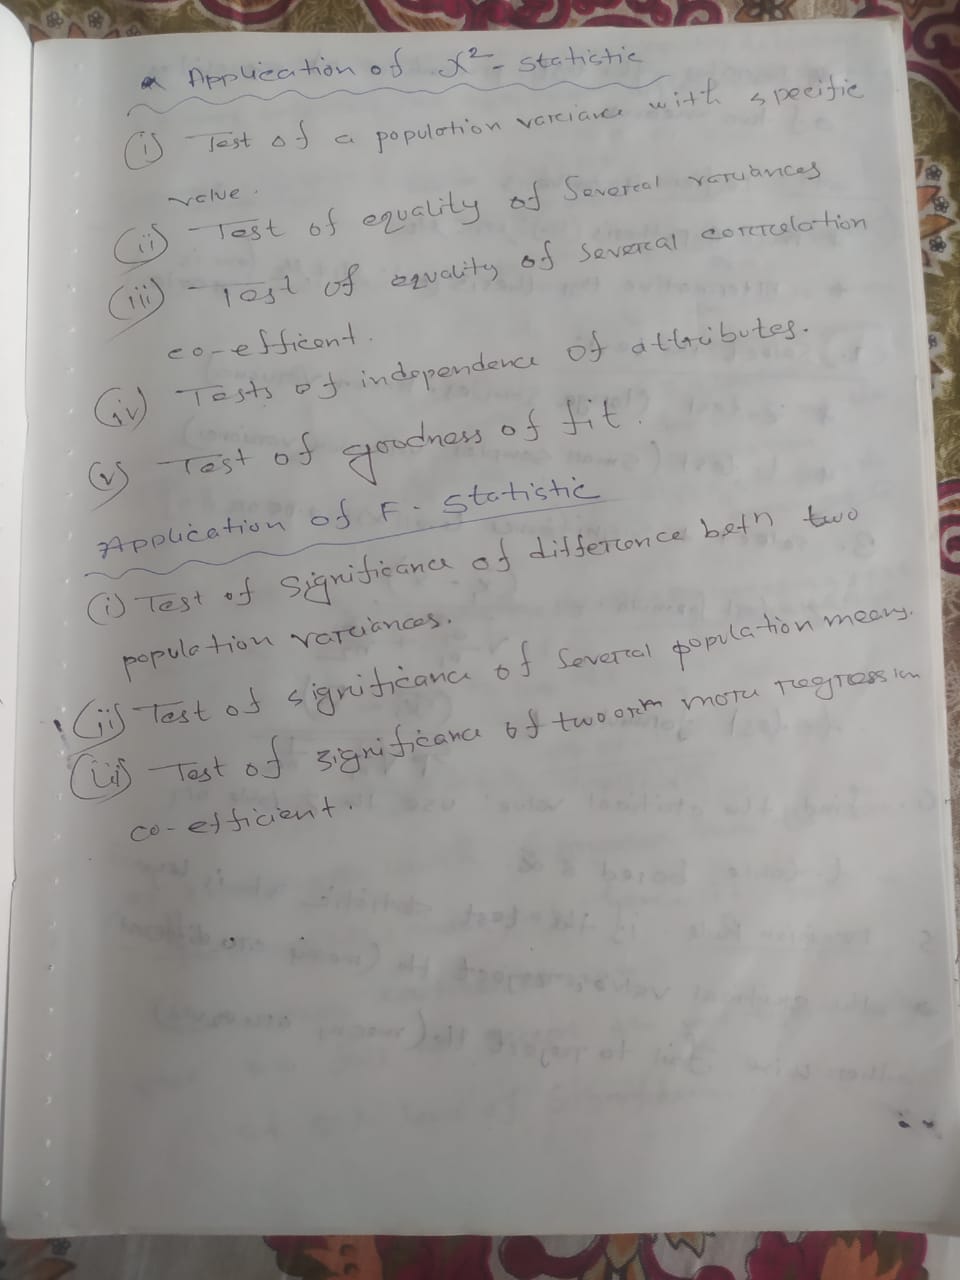 Application of χ²- statistic
(i) Test of a population variance with specific
value.
(ii) Test of equality of several variances
(iii) Test of equality of several correlation
co-efficent.
(iv) Tests of independence of attributes.
(v) Test of goodness of fit.
Application of F. statistic
(i) Test of significance of difference betn two
population variances.
(ii) Test of significance of several population means.
(iii) Test of significance of two orm more regression
co-efficient.